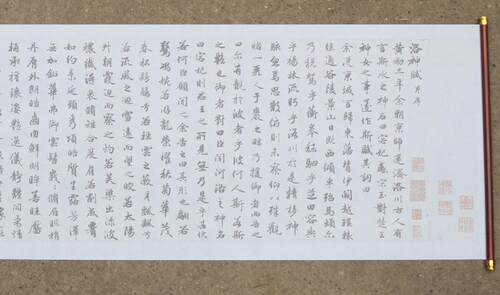 洛神賦 并序
黃初三年余朝京師還濟洛川古人有
言斯水之神名曰宓妃感宋玉對楚王
神女之事遂作斯賦其詞曰
余從京域言歸東藩背伊闕越轘轅
經通谷陵景山日既西傾車殆馬煩爾
乃稅駕乎蘅皋秣駟乎芝田容與
乎楊林流眄乎洛川於是精移神
駭忽焉思散俯則未察仰以殊觀
睹一麗人于巖之畔乃援御者而告之
曰爾有覿於彼者乎彼何人斯若斯
之豔也御者對曰臣聞河洛之神名
曰宓妃則君王之所見無乃是乎其狀
若何臣願聞之余告之曰其形也翩若
驚鴻婉若遊龍榮曜秋菊華茂
春松髣髴兮若輕雲之蔽月飄颻兮
若流風之迴雪遠而望之皎若太陽
升朝霞迫而察之灼若芙蕖出淥波
穠纖得衷脩短合度肩若削成腰
如約素延頸秀項皓質呈露芳澤
無加鉛華弗御雲髻峩峩脩眉聯娟
丹脣外朗皓齒內鮮明眸善睞靨
輔承權瓌姿艷逸儀靜體閑柔情